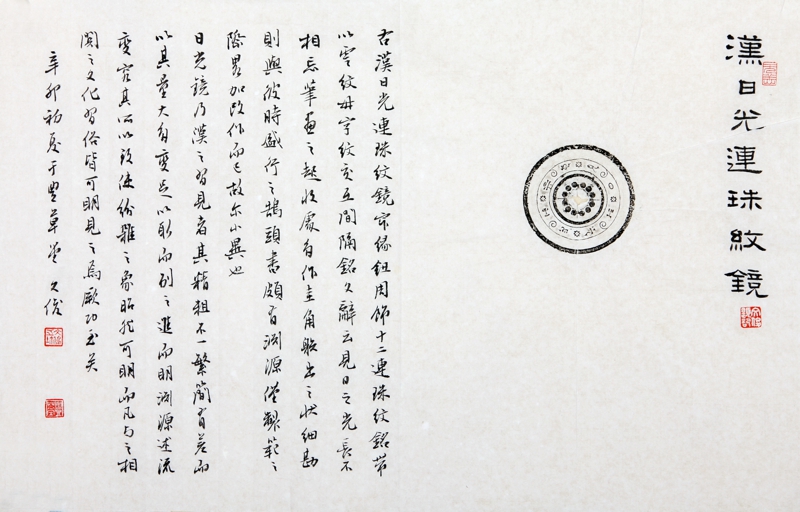 漢日光連珠紋鏡
右漢日光連珠紋鏡常緣鈕周飾十二連珠紋銘帶
以雲紋毋字紋交互間隔銘文辭云見日之光長不
相忘筆畫之起收處有作圭角艇出之狀細勘
則與彼時盛行之鵠頭書頗有淵源僅製範之
際畧加改作而已故尒小異也
日光鏡乃漢之習見者其精粗不一繁簡有差而
以其量大有變足以取而列之進而明淵源述流
變官其以致使紛雜之象昭然可明而凡與之相
關之文化習俗皆可明見之焉厥功至矣
辛卯初夏于豐草堂文俊